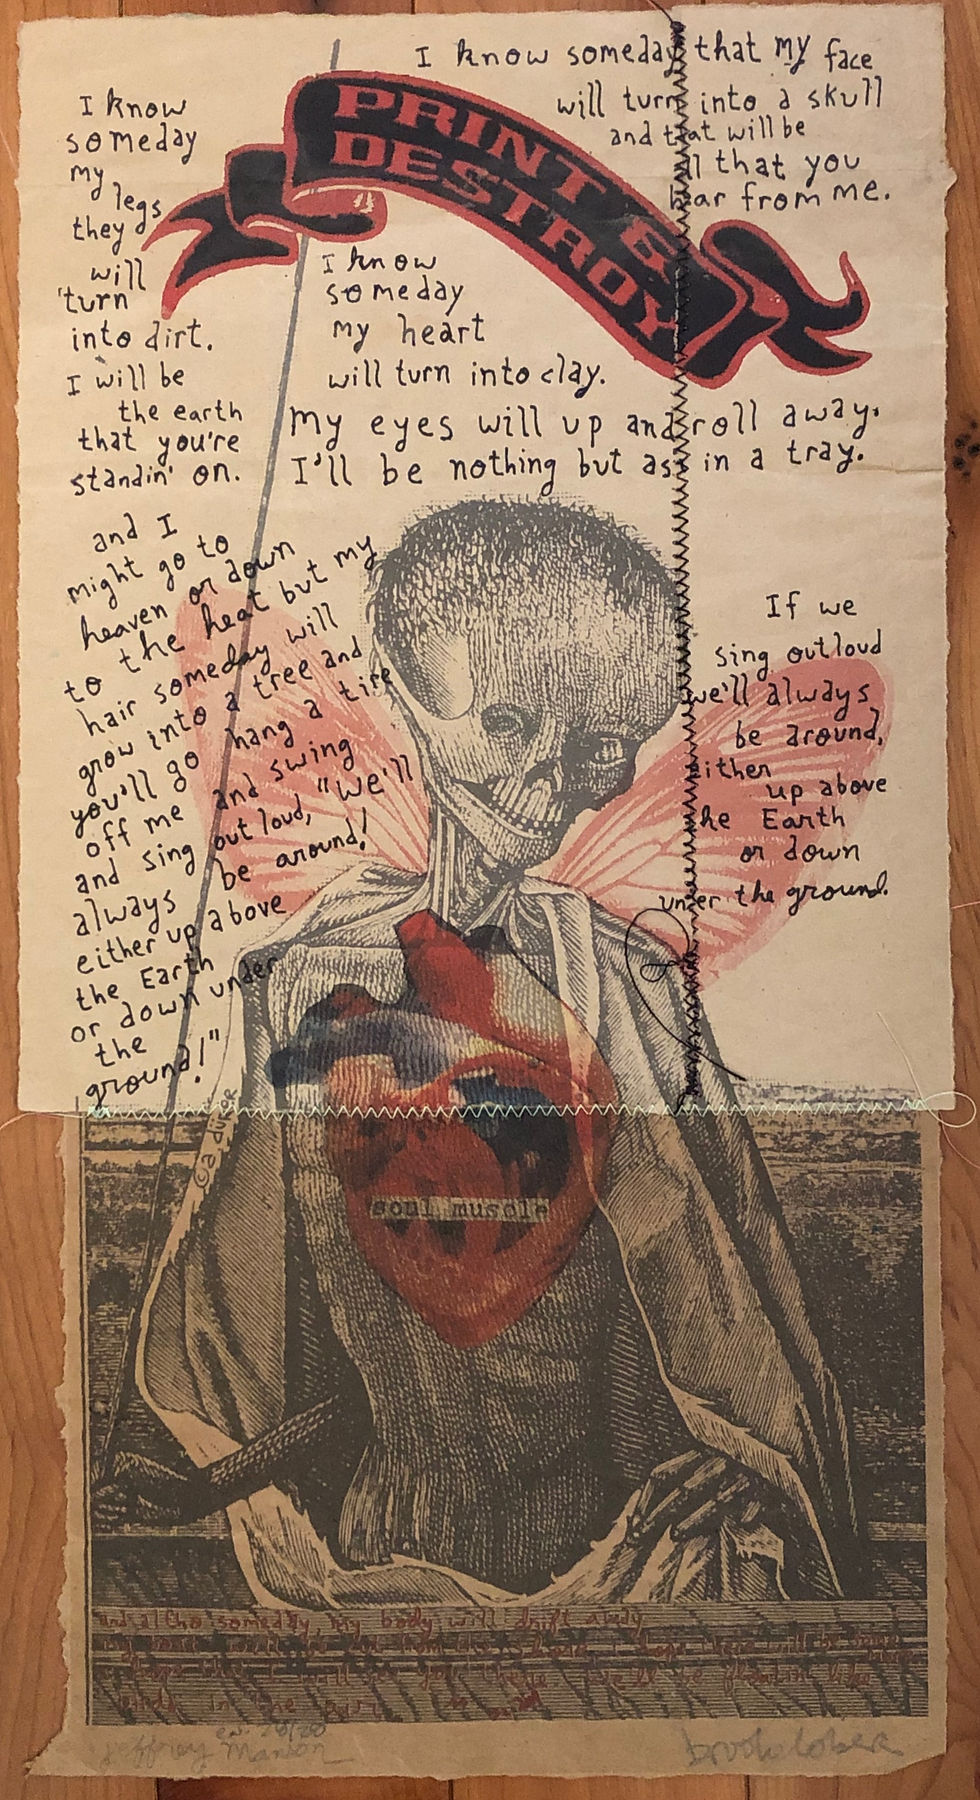 I know someday that my face
will turn into a skull
and that will be
all that you
hear from me.
PRINT &
DESTROY
I know
someday
my
legs
they
will
turn
into dirt.
I will be
the earth
that you're
standin' on.
I know
someday
my heart
will turn into clay.
My eyes will up and roll away.
I'll be nothing but ash in a tray.
and I
might go to
heaven or down
to the heat but my
hair someday will
grow into a tree and
you'll go hang a tire
off me and swing
and sing out loud, "we'll
always be around!
either up above
the Earth
or down under
the
ground!"
If we
sing outloud
we'll always
be around,
either
up above
the Earth
or down
under the ground.
soul muscle
and altho someday, my body will drift away
Jeffrey Manson